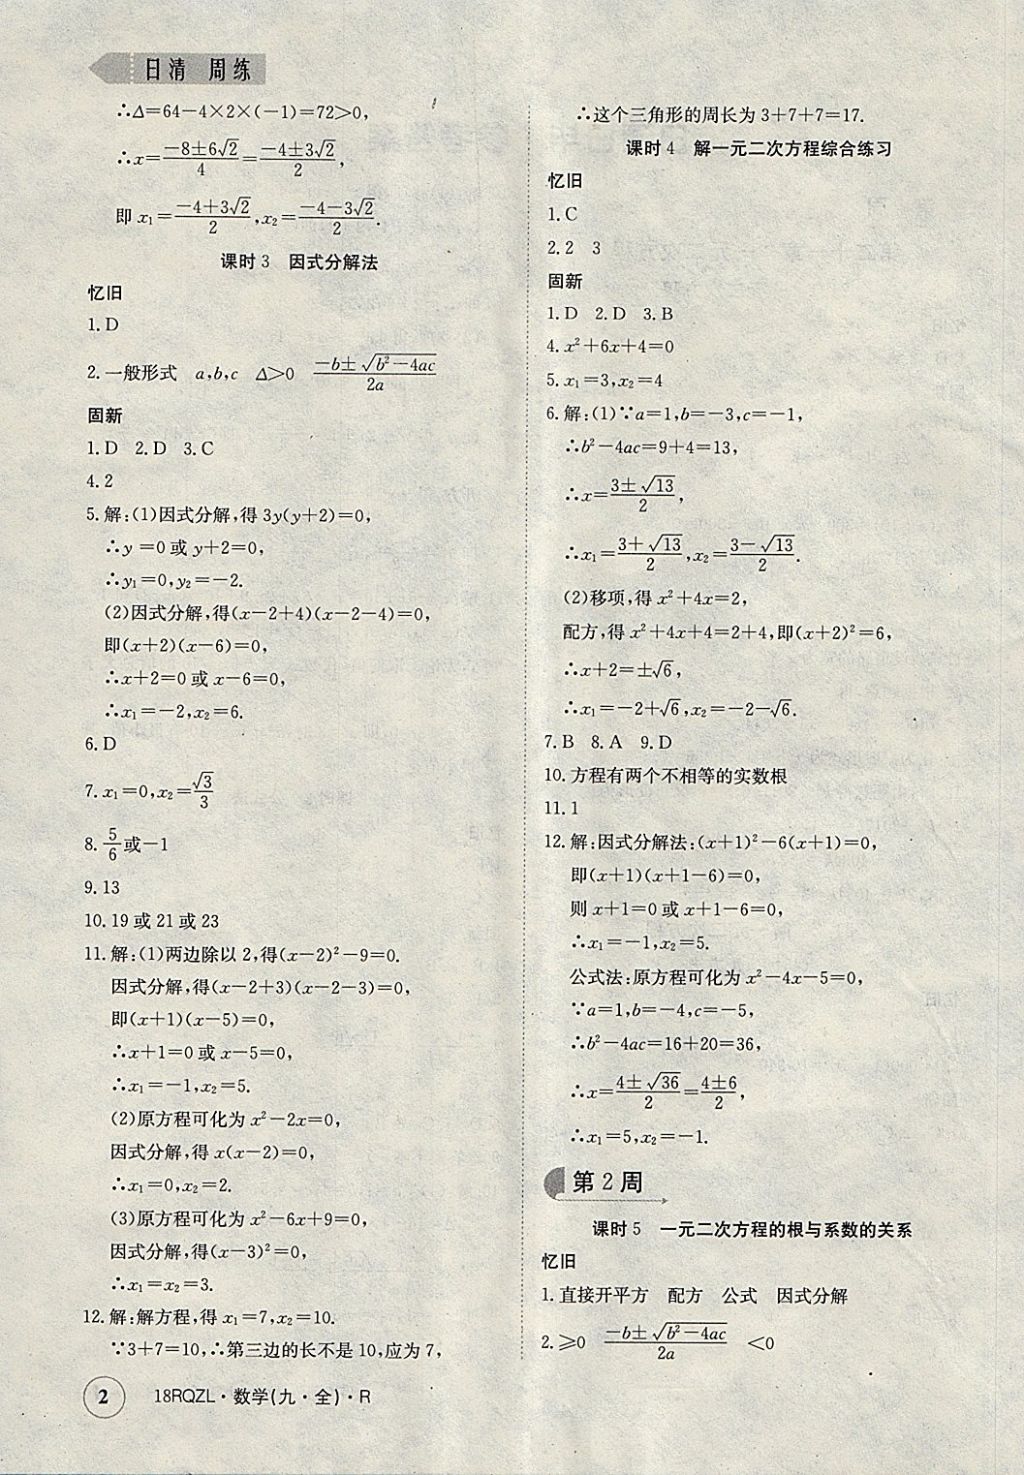 日清 周练
∴Δ=64-4×2×(-1)=72>0,
∴x=\frac{-8±6√2}{4}=\frac{-4±3√2}{2},
即 x₁=\frac{-4+3√2}{2},x₂=\frac{-4-3√2}{2}.
课时3 因式分解法
忆旧
1.D
2.一般形式 a,b,c Δ>0 \frac{-b±√(b²-4ac)}{2a}
固新
1.D 2.D 3.C
4.2
5.解:(1)因式分解,得3y(y+2)=0,
∴y=0或y+2=0,
∴y₁=0,y₂=-2.
(2)因式分解,得(x-2+4)(x-2-4)=0,
即(x+2)(x-6)=0,
∴x+2=0或x-6=0,
∴x₁=-2,x₂=6.
6.D
7.x₁=0,x₂=\frac{√3}{3}
8.\frac{5}{6}或-1
9.13
10.19或21或23
11.解:(1)两边除以2,得(x-2)²-9=0.
因式分解,得(x-2+3)(x-2-3)=0,
即(x+1)(x-5)=0,
∴x+1=0或x-5=0,
∴x₁=-1,x₂=5.
(2)原方程可化为x²-2x=0,
因式分解,得x(x-2)=0,
∴x₁=0,x₂=2.
(3)原方程可化为x²-6x+9=0,
因式分解,得(x-3)²=0,
∴x₁=x₂=3.
12.解:解方程,得x₁=7,x₂=10.
∵3+7=10,∴第三边的长不是10,应为7,
∴这个三角形的周长为3+7+7=17.
课时4 解一元二次方程综合练习
忆旧
1.C
2.2 3
固新
1.D 2.D 3.B
4.x²+6x+4=0
5.x₁=3,x₂=4
6.解:(1)∵a=1,b=-3,c=-1,
∴b²-4ac=9+4=13,
∴x=\frac{3±√13}{2},
∴x₁=\frac{3+√13}{2},x₂=\frac{3-√13}{2}.
(2)移项,得x²+4x=2,
配方,得x²+4x+4=2+4,即(x+2)²=6,
∴x+2=±√6,
∴x₁=-2+√6,x₂=-2-√6.
7.B 8.A 9.D
10.方程有两个不相等的实数根
11.1
12.解:因式分解法:(x+1)²-6(x+1)=0,
即(x+1)(x+1-6)=0,
则x+1=0或x+1-6=0,
∴x₁=-1,x₂=5.
公式法:原方程可化为x²-4x-5=0,
∵a=1,b=-4,c=-5,
∴b²-4ac=16+20=36,
∴x=\frac{4±√36}{2}=\frac{4±6}{2},
∴x₁=5,x₂=-1.
第2周
课时5 一元二次方程的根与系数的关系
忆旧
1.直接开平方 配方 公式 因式分解
2.≥0 \frac{-b±√(b²-4ac)}{2a} <0
2 18RQZL·数学(九·全)·R